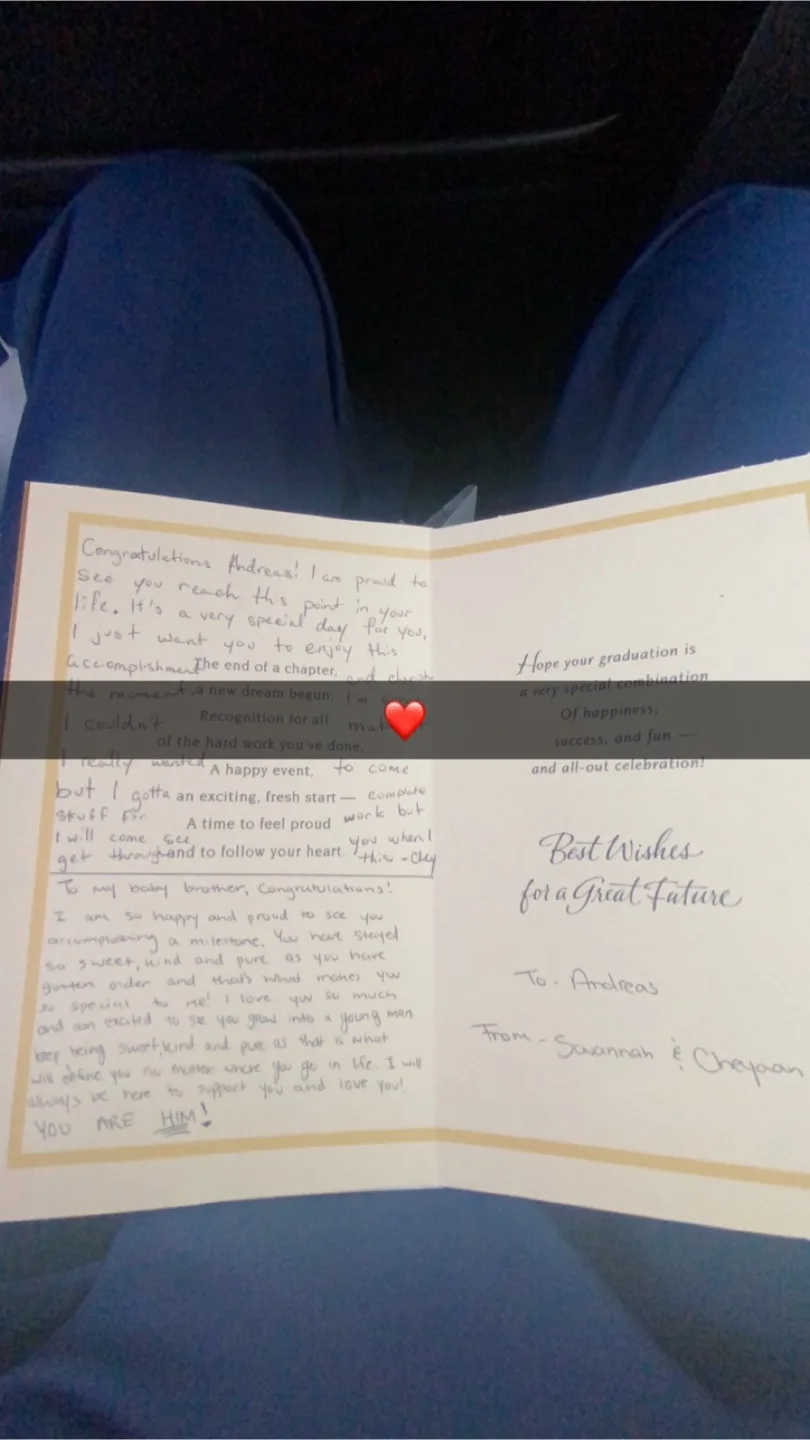 Congratulations Andreas! I am proud to
see you reach this point in your
life. It's a very special day for you,
I just want you to enjoy this
accomplishment and cherish
the moment. I'm
I couldn't
I really wanted to come
but I gotta complete
stuff for work but
I will come see you when I
get through this - Chey
The end of a chapter,
a new dream begun.
Recognition for all
of the hard work you've done.
A happy event,
an exciting, fresh start —
A time to feel proud
and to follow your heart.
To my baby brother, Congratulations!
I am so happy and proud to see you
accomplishing a milestone. You have stayed
so sweet, kind and pure as you have
gotten older and that's what makes you
so special to me! I love you so much
and am excited to see you grow into a young man
keep being sweet, kind and pure as that is what
will define you no matter where you go in life. I will
always be here to support you and love you!
YOU ARE HIM!
Hope your graduation is
a very special combination
Of happiness,
success, and fun —
and all-out celebration!
Best Wishes
for a Great Future
To - Andreas
From - Savannah & Cheyaan